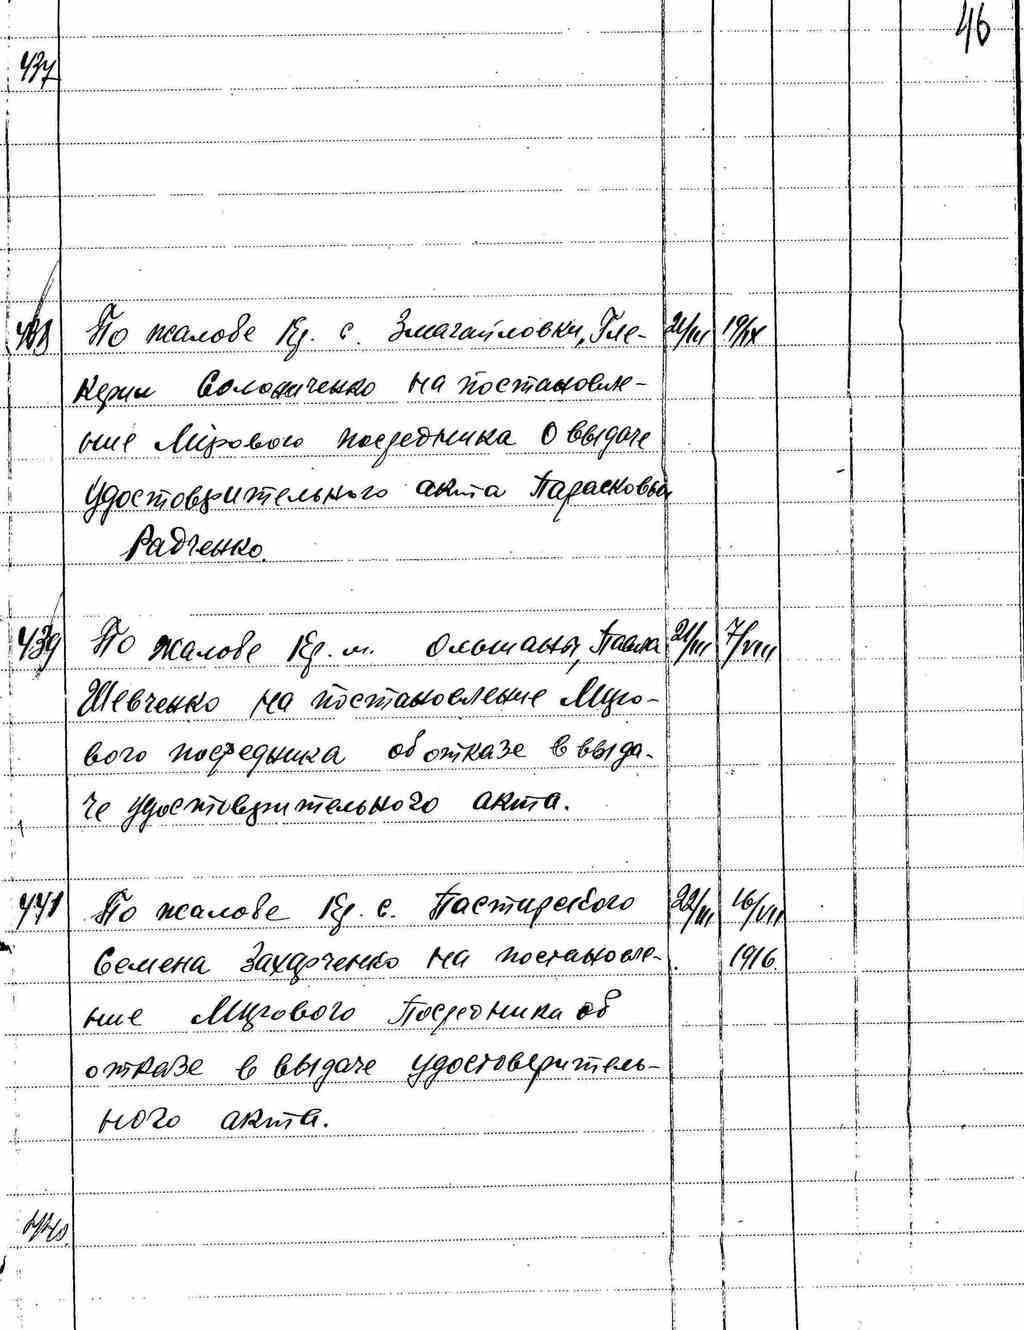 46
437
438 По жалобе Кр. с. Змагайловки, Гле-
керии Солониченко на постановле-
ние Мірового посредника о выдаче
удостоврительного акта Парасковьи
Радченко.
439 По жалобе Кр. м. Ольшаны, Павла
Шевченко на постановление Миро-
вого посредника об отказе в выда-
че удостоврительного акта.
441 По жалобе Кр. с. Пастирского 22/III 16/VII
Семена Захарченко на постановле- 1916.
ние Мирового Посредника об
отказе в выдаче удостоверитель-
ного акта.
440.